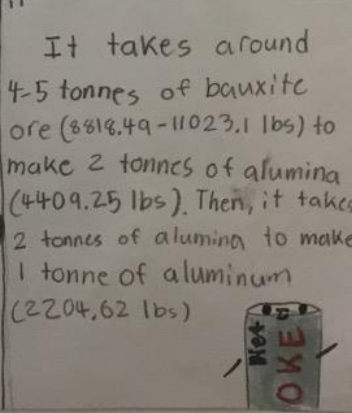 It takes around
4-5 tonnes of bauxite
ore (8818.49-11023.1 lbs) to
make 2 tonnes of alumina
(4409.25 lbs). Then, it takes
2 tonnes of alumina to make
1 tonne of aluminum
(2204,62 lbs)
Not
OKE